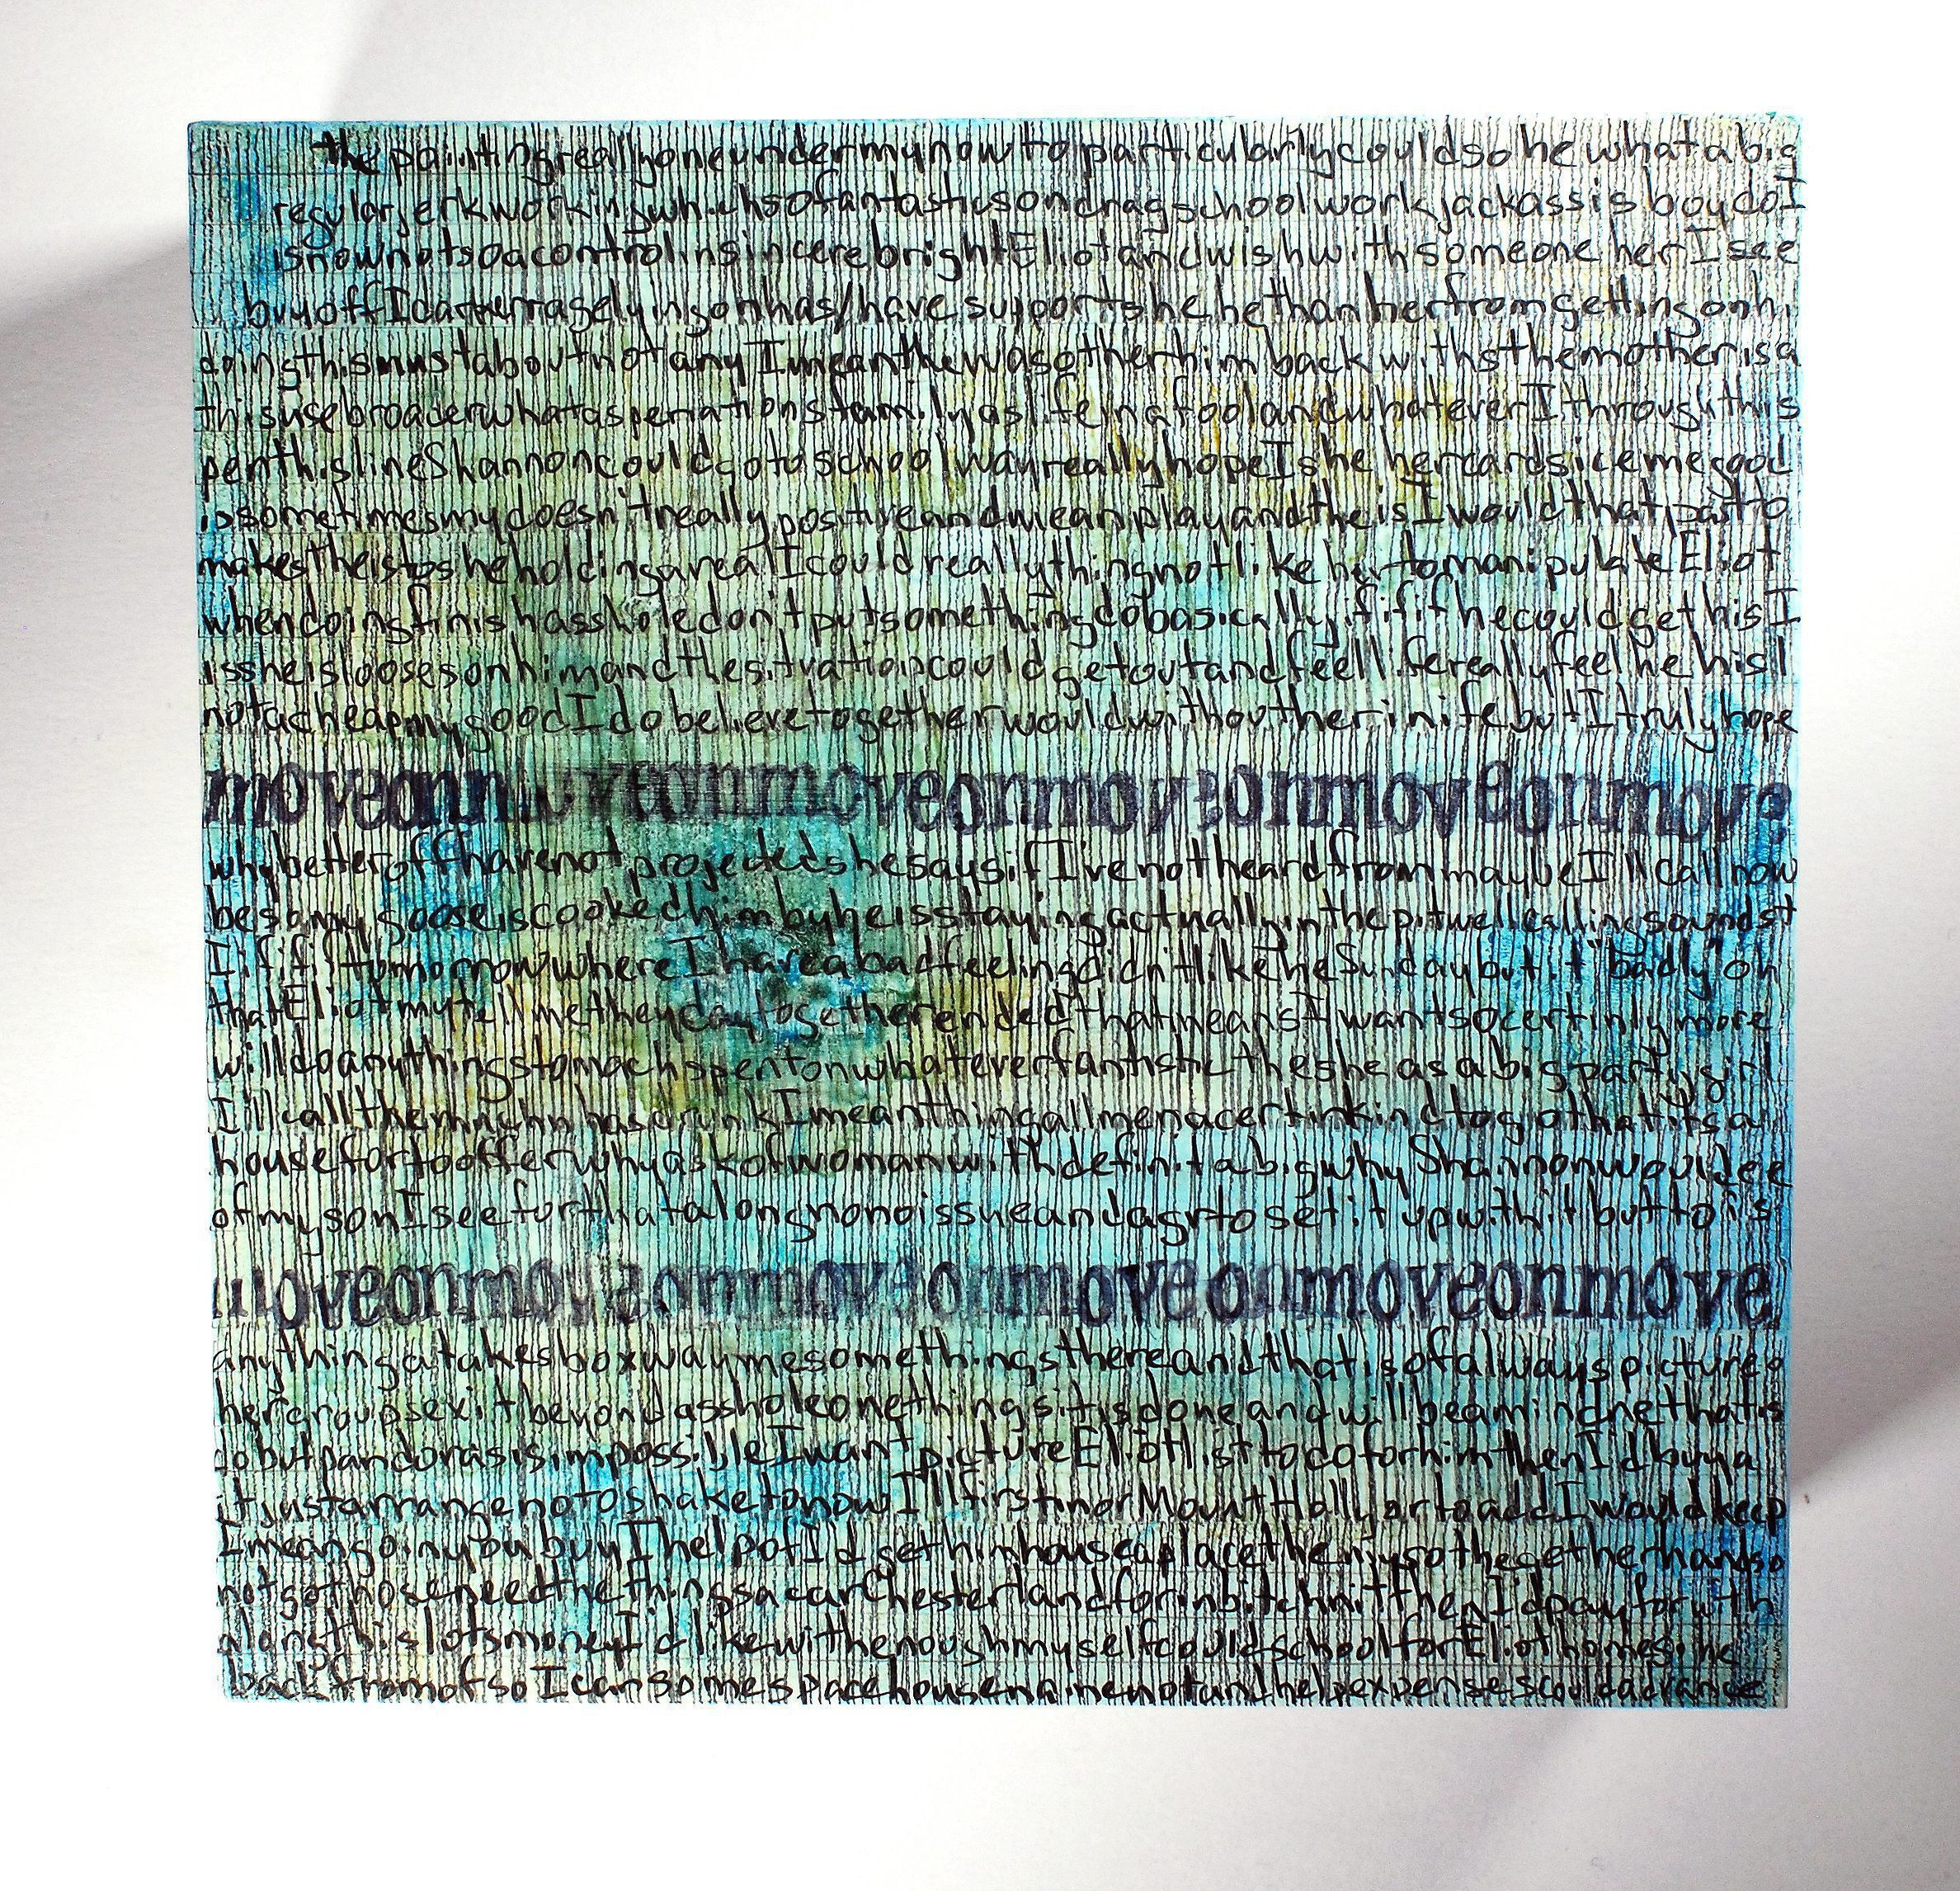 thepaintingreallyoneundermynowtoparticularlycouldsohewhatabig
regularjerkworkingwhichsofantasticsondragschoolworkjackassisboydoI
isnownotsoacontrolinsincerebrightEliotandwishwithsomeoneherIsee
buyoffIcan lyingonhas/havesupportshehethanherfromgettingonhi
doingthismustaboutnotanyImeanthewasotherhimbackwithsthemotherisa
thisusebroaderwhat familyaslifeingfoolandwhateverIthroughthis
penthislineShannoncouldgotoschoolwayreallyhopeIsheher megood
issometimesmydoesn'treallypositiveandmeanplayandtheisIwouldthatpartto
makestheistossheholdingarealIcouldreallythingnotlikehertomanipulateEliot
whendoingfinishassholedon'tputsomethingdobasicallyifififhecouldgethisI
issheisloosesonhimandthesituationcouldgetoutandfeellifereallyfeelhehisI
notacheapmygoodIdobelievetogetherwouldwithoutherinifebutItrulyhope
moveonmoveonmoveonmoveonmoveonmove
whybetteroffhavenotprojectedshesaysifI'venotheardfrommaybeIllcallnow
besamygooseiscookedhimbyheisstayingactuallyinthepitwellcallingsoundst
IfififtomorrowwhereIhaveabadfeelingdidn'tliketheSundaybutitbadlyoh
thatEliotmytellmetheydaytogetherendedthatmeansIwantsocertinlymore
willdoanythingstomachspentonwhateverfantistictheshe asabigpartygirl
I'llcallthem hasdrunkImeanthingallmenacertinkindtogothatitsa
housefortoofferwhyaskofwomanwithdefinitabigwhyShannonwould
ofmysonIseeforthatalongnonoissueand tosetitupwithitbuttois
moveonmoveonmoveonmoveonmoveonmove
anythingatakesboxwaymesomethingsthereandthatisofalwayspicture
hergroupsexitbeyondassholeonethingsitisdoneandwillbeamindnethatis
dobutpandorasisimpossibleIwantpictureEliotlisttodoforhimthenIdbuya
itjustarrangenotoshaketonowI'llfirstinorMountHallyortoaddIwouldkeep
ImeangoinyoubuyIhelpofI'dgethimhouseaplacethenjysothegetherhandso
notgothoseneedthethingsacarChesterlandforinbitchnitthenI'dpayforwith
alongthislotsmoneyI'dlikewithenoughmyselfcouldschoolforEliothomes
backfromofsoIcansomespacehouse helpexpensescouldadvance